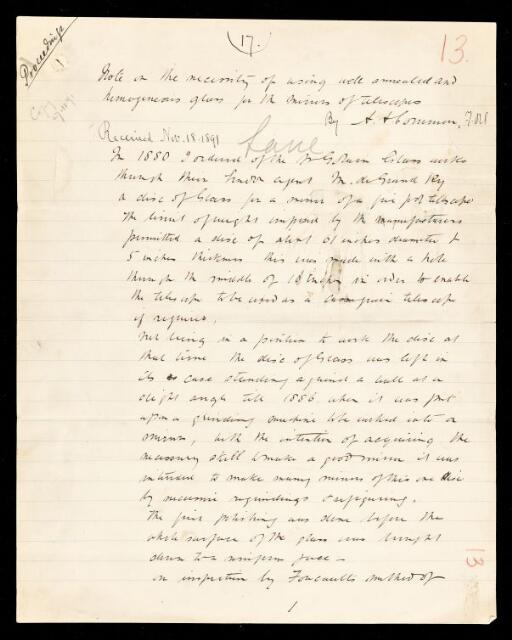 Proceedings
1
17.
13.
Note on the necessity of using well annealed and
homogeneous glass for the mirrors of telescopes
By A. A. Common, F.R.S
Received Nov. 18. 1891
In 1880 I ordered of the St Gobain Glass works
through their London agent M. de Grand Ry
a disc of Glass for a mirror of a five foot telescope
The limit of weight imposed by the manufacturers
permitted a disc of about 61 inches diameter &
5 inches thickness this was made with a hole
through the middle of 10 inches in order to enable
the telescope to be used as a telescope
if required.
Not being in a position to work the disc at
that time the disc of Glass was left in
its case standing against a wall at a
slight angle till 1886 when it was put
upon a grinding machine to be worked into a
mirror, with the intention of acquiring the
necessary skill to make a good mirror it was
intended to make many mirrors of this one disc
by successive regrindings & refiguring.
The first polishing was done before the
whole surface of the glass was brought
down to a uniform face —
on inspection by Foucaults method of
13
1